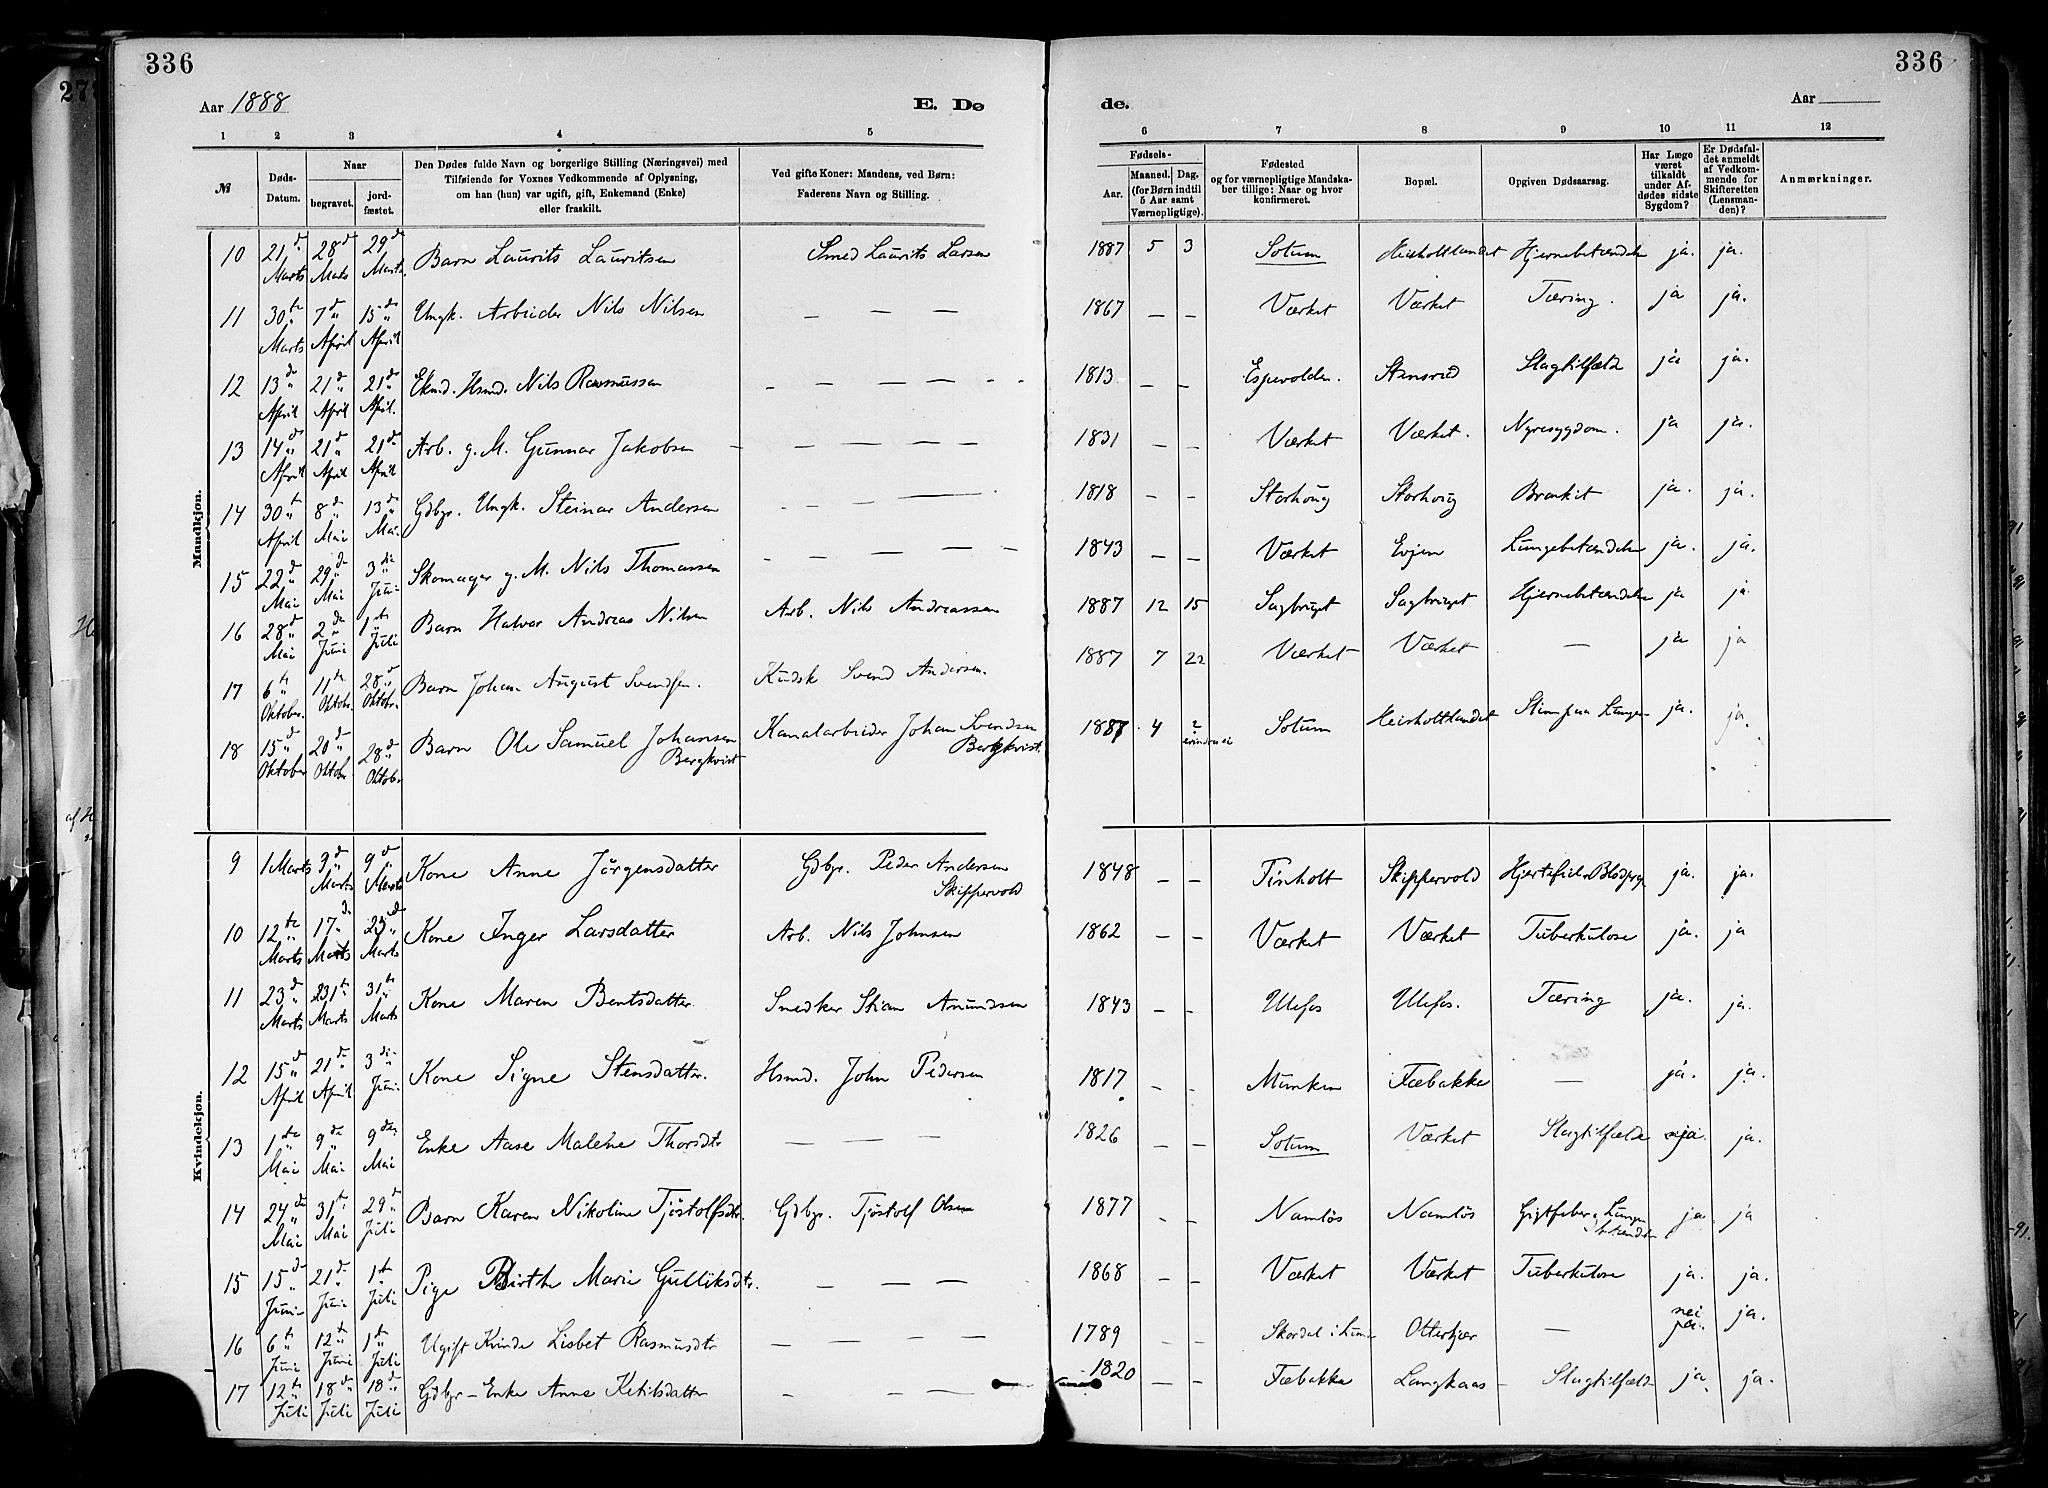 336
336
Aar 1888
E. Dø
de.
Aar
1 2 3 4 5 6 7 8 9 10 11 12
№ Døds-Datum. Naar begravet. jordfæstet. Den Dødes fulde Navn og borgerlige Stilling (Næringsvei) med Tilføiende for Voxnes Vedkommende af Oplysning, om han (hun) var ugift, gift, Enkemand (Enke) eller fraskilt. Ved gifte Koner: Mandens, ved Børn: Faderens Navn og Stilling. Fødsels- Aar. Maaned. Dag. (for Børn indtil 5 Aar samt Værnepligtige). Fødested og for værnepligtige Mandskaber tillige: Naar og hvor konfirmeret. Bopæl. Opgiven Dødsaarsag. Har Læge været tilkaldt under Afdødes sidste Sygdom? Er Dødsfaldet anmeldt af Vedkommende for Skifteretten (Lensmanden)? Anmærkninger.
Mandkjøn.
10 21d Marts 28d Marts 29d Marts Barn Laurits Lauritsen Smed Laurits Larsen 1887 5 3 Sotum Heisholtlandet Hjernebetændelse ja. ja.
11 30te Marts 7d April 15de April Ungk. Arbeider Nils Nilsen — — — 1867 — — Værket Værket Tæring. ja ja.
12 13d April 21d April 21d April. Ekmd. Hsmd. Nils Rasmussen - — — — - - 1813. — — Espevolden. Stensrud Slagtilfælde ja ja.
13 14de April 21d April 21de April Arb. g. M. Gunnar Jakobsen — — — — — 1831 — — Værket Værket. Nyresygdom. ja ja.
14 30t April 8d Mai 13d Mai. Gdbgr. Ungk. Steinar Andersen - — — 1818 - - Storhoug Storhoug Brækit ja. ja.
15 22d Mai 29d Mai 3die Juni Skomager g. M. Nils Thomassen - — — — — 1843 — — Værket Evjen Lungebetændelse ja. ja.
16 28d Mai 2de Juni 1ste Juli Barn Halvor Andreas Nilsen Arb. Nils Andreassen 1887 12 15 Sagbruget Sagbruget Hjernebetændelse ja ja
17 6te Oktober. 11te Oktobr. 28d Oktobr. Barn Johan August Svendsen. Kudsk Svend Andersen. 1887 7 22 Værket Værket — ja ja
18 15d Oktober 20d Oktobr. 28d Oktobr Barn Ole Samuel Johansen Bergkvist Kanalarbeider Johan Svendsen Bergkvist. 1887 4 ? erindres ei Sotum Heisholtlandet Stim paa Lungen ja. ja.
Kvindekjøn.
9 1 Marts 9d Marts 9d Marts Kone Anne Jørgensdatter Gdbgr. Peder Andersen Skippervold 1848 — — Tinholt Skippervold ja. ja.
10 12te Marts 17d Marts 23d Marts Kone Inger Larsdatter Arb. Nils Johnsen 1862 - - Værket Værket Tuberkulose ja. ja
11 23d Marts 31te Marts 31te Marts Kone Maren Bentsdatter. Snedker Stian Amundsen 1843 — - Ulefos Ulefos. Tæring ja. ja.
12 15d April 21de April 3die Juni Kone Signe Stensdatter. Hsmd. John Pedersen 1817 - - Munken Fæbakke — ja. ja.
13 1ste Mai 9de Mai 9de Mai Enke Aase Malene Thorsdtr — — — 1826 — - Sotum Værket Slagtilfælde ja. ja.
14 24de Mai 31te Mai 29d Juli Barn Karen Nikoline Tjöstolfsdtr. Gdbgr. Tjöstolf Olsen 1877 — - Namlös Namlös Gigtfeber & Lungebetændelse ja. ja
15 15de Juni 21d Juni 1ste Juli Pige Birthe Marie Gulliksdtr. — — — 1868 - - Værket Værket Tuberkulose ja. ja.
16 6te Juni 12te Juni 1ste Juli Ugift Kvinde Lisbet Rasmusdtr — — — — 1789 — - Skordal i Lunde Otterkjær — nei ja. ja.
17 12te Juli 18de Juli 18de Juli Gdbgr-Enke Anne Ketilsdatter - — — 1820 — - Fæbakke Langkaas - Slagtilfælde ja. ja.